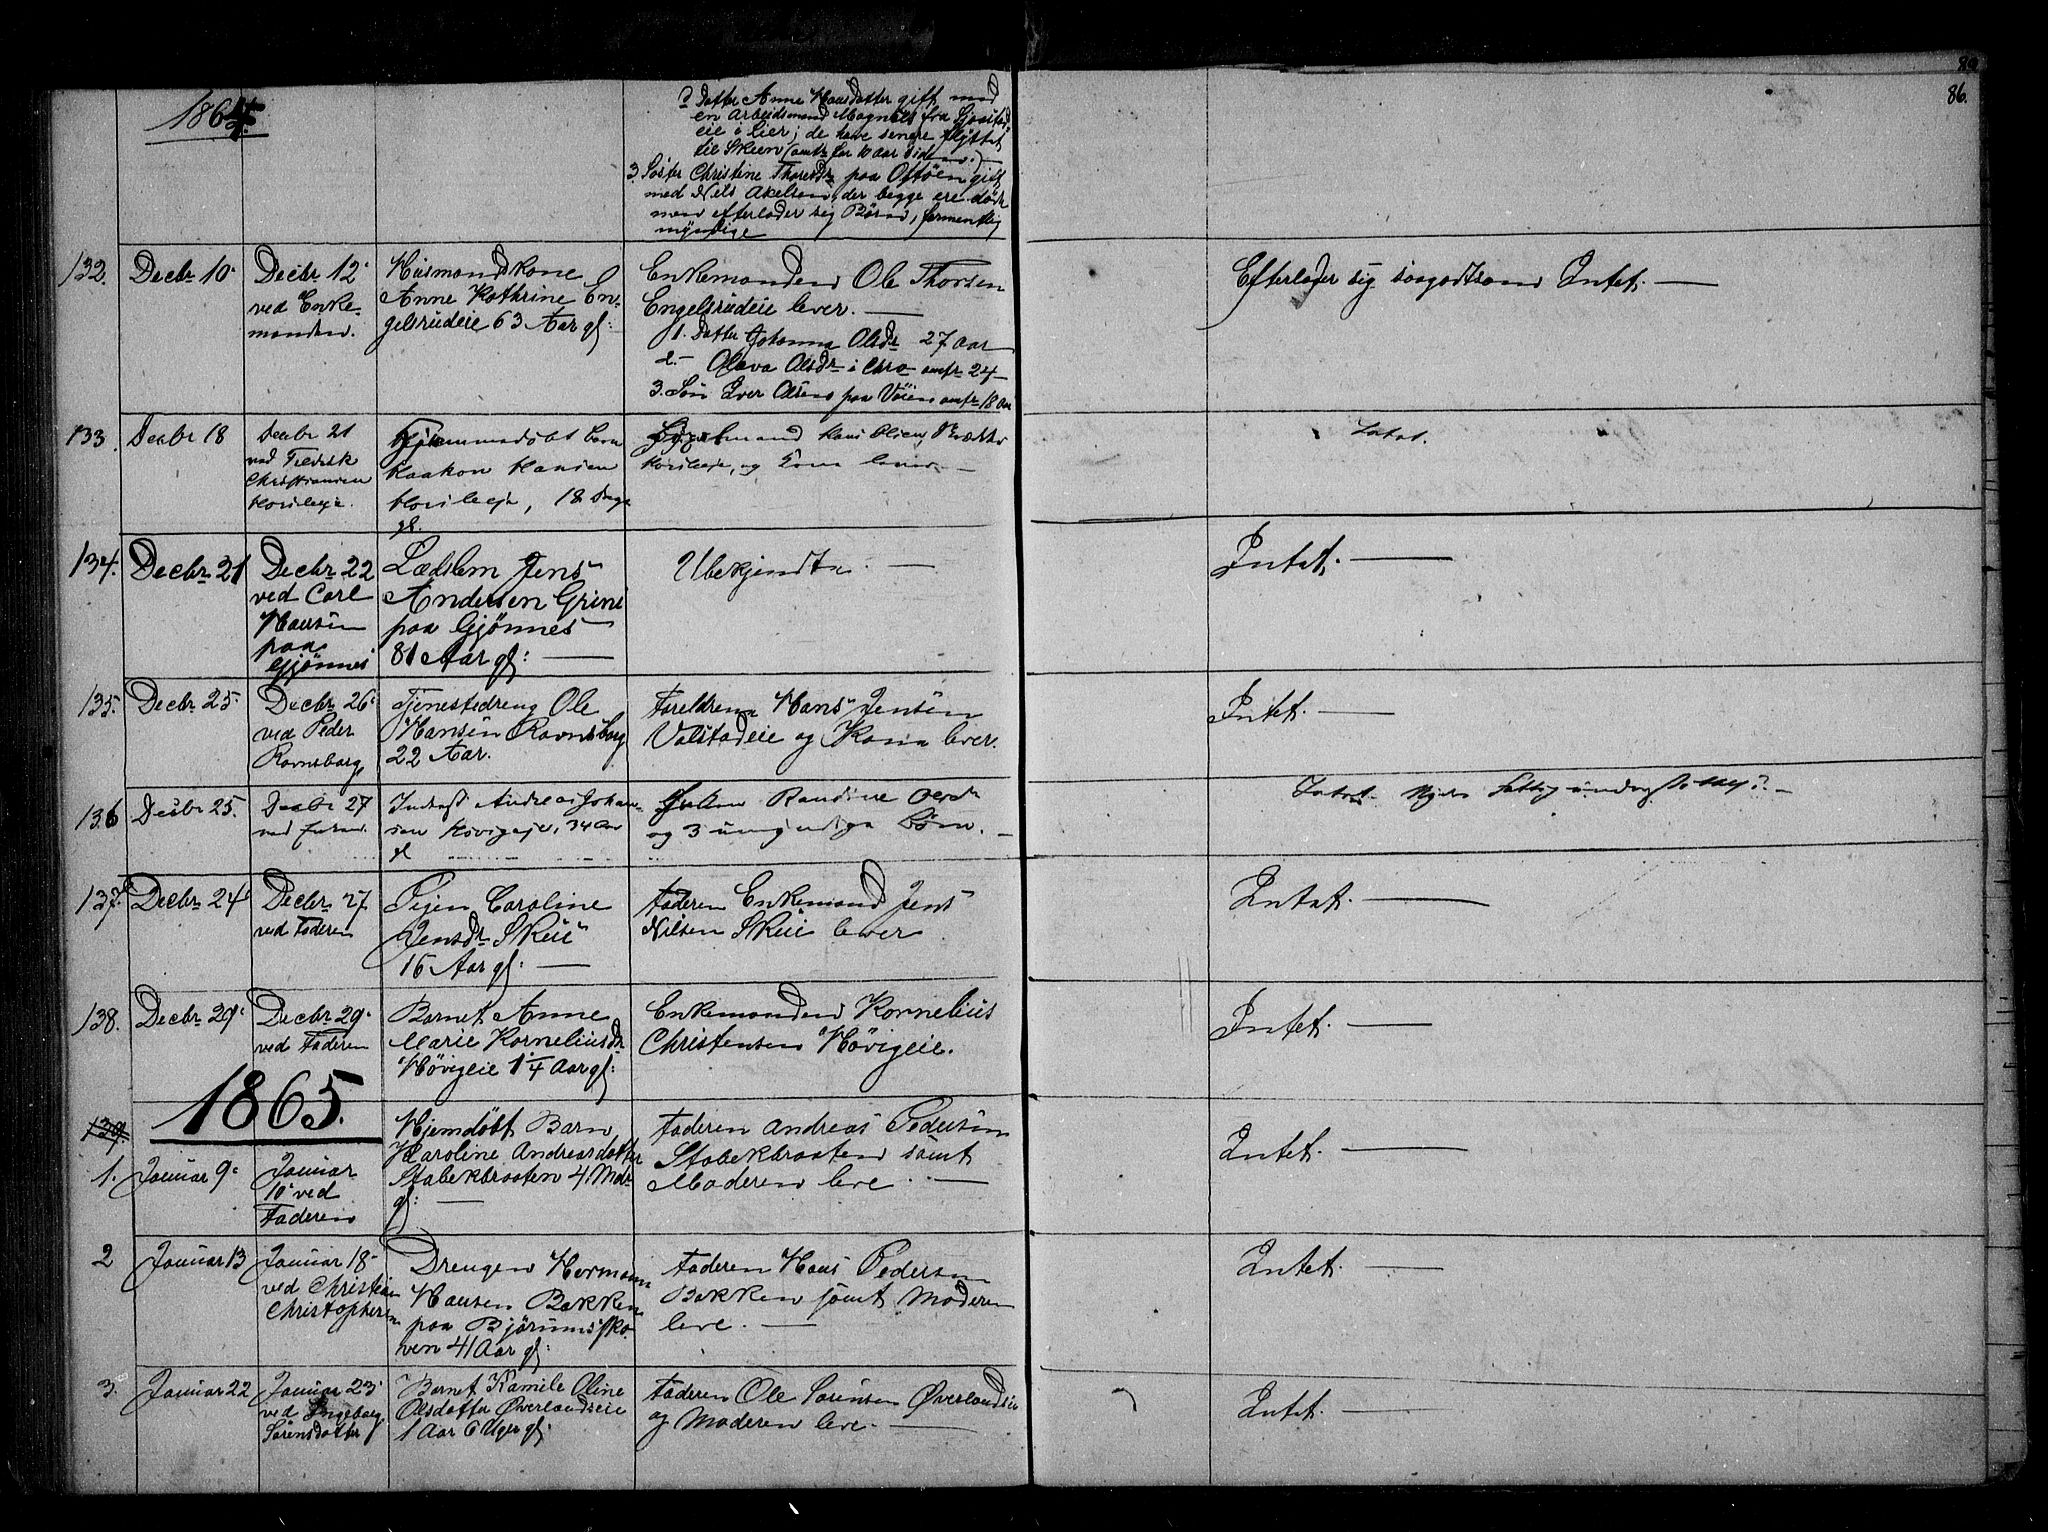 86.
1864.
2 Datter Anne Hansdatter gift med
en Arbeidsmand Magnus fra
eie i Lier; de have senere flyttet
til Skien (omtr for 10 Aar siden.)
3. Søster Christine Thoresdr paa Ostøen gift
med Nils Akelsen, der begge ere døde
men efterlader sig Børn, formentlig
myndige
132. Decbr 10. Decbr 12.
ved Enke-
manden.
Husmandskone
Anne Kathrine En-
gelsrudeie 63 Aar gl:
Enkemanden Ole Thorsen
Engelsrudeie lever. —
1. Datter Johanna Olsdr 27 Aar
2. — Olava Olsdr i Chra omtr 24 —
3. Søn Iver Olsen paa Vøien omtr 18 Aar
Efterlader sig saagodtsom Intet. —
133. Decbr 18 Decbr 21
ved Fredrik
Christiansen
Hjemmedøbt Barn
Haakon Hansen
18 Dage
gl.
Hans Olsen
og Kone lever. —
Intet.
134. Decbr 21 Decbr 22
ved Carl
Hansen
paa
Gjønnes
Lægdslem Jens
Andersen Grini
paa Gjønnes
81 Aar gl: —
Ubekjendte. —
Intet. —
135. Decbr 25. Decbr 26.
ved Peder
Ravnsborg
Tjenestedreng Ole
Hansen Ravnsborg
22 Aar.
Foreldrene Hans Jensen
Valstadeie og Kone lever.
Intet. —
136 Decbr 25. Decbr 27
ved Enken.
Inderst Andreas Johan-
sen Høvigeie, 34 Aar
gl
Enken Randine
og 3 umyndige Børn. —
Intet. Nyder Fattigunderstøttelse. —
137. Decbr 24 Decbr 27
ved Faderen
Pigen Caroline
Jensdr Skui
16 Aar gl: —
Faderen Enkemand Jens
Nilsen Skui lever
Intet. —
138. Decbr 29. Decbr 29.
ved Faderen
Barnet Anne
Marie Korneliusdr
Høvigeie 1 1/4 Aar gl:
Enkemanden Kornelius
Christensen Høvigeie.
Intet. —
1865.
139.
1. Januar 9. Januar
10. ved
Faderen
Hjemdøbt Barn
Karoline Andreasdatter
Stabekbraaten 4 Mdr
gl: —
Faderen Andreas Pedersen
Stabekbraaten samt
Moderen leve. —
Intet. —
2 Januar 13 Januar 18
ved Christian
Christophersen
Drengen Hermann
Hansen Bakken
paa Bjørumssko-
ven 41 Aar gl:
Faderen Hans Pedersen
Bakken samt Moderen
leve. —
Intet. —
3. Januar 22 Januar 23.
ved Ingeborg
Sørensdatter
Barnet Kamile Oline
Olsdatter Øverlandseie
1 Aar 6 Uger gl:
Faderen Ole Sørensen Øverlandseie
og Moderen leve. —
Intet. —